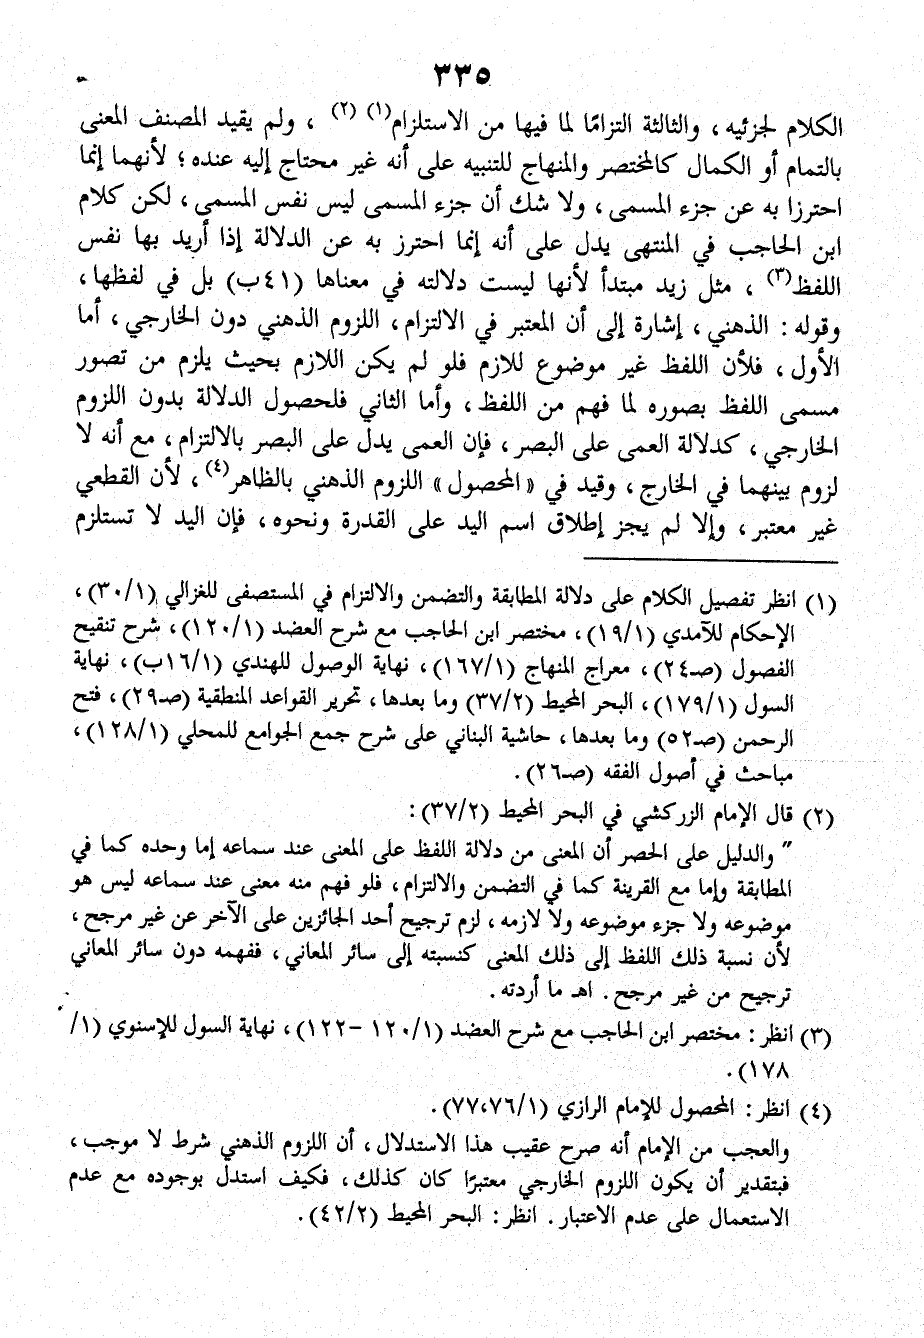 ٣٣٥
الكلام لجزئيه، والثالثة التزامًا لما فيها من الاستلزام(١) (٢) ، ولم يقيد المصنف المعنى
بالتمام أو الكمال كالمختصر والمنهاج للتنبيه على أنه غير محتاج إليه عنده؛ لأنهما إنما
احترزا به عن جزء المسمى، ولا شك أن جزء المسمى ليس نفس المسمى، لكن كلام
ابن الحاجب في المنتهى يدل على أنه إنما احترز به عن الدلالة إذا أريد بها نفس
اللفظ(٣) ، مثل زيد مبتدأ لأنها ليست دلالته في معناها (٤١ب) بل في لفظها،
وقوله: الذهني، إشارة إلى أن المعتبر في الالتزام، اللزوم الذهني دون الخارجي، أما
الأول، فلأن اللفظ غير موضوع للازم فلو لم يكن اللازم بحيث يلزم من تصور
مسمى اللفظ بصوره لما فهم من اللفظ، وأما الثاني فلحصول الدلالة بدون اللزوم
الخارجي، كدلالة العمى على البصر، فإن العمى يدل على البصر بالالتزام، مع أنه لا
لزوم بينهما في الخارج، وقيد في «المحصول» اللزوم الذهني بالظاهر(٤)، لأن القطعي
غير معتبر، وإلا لم يجز إطلاق اسم اليد على القدرة ونحوه، فإن اليد لا تستلزم
(١) انظر تفصيل الكلام على دلالة المطابقة والتضمن والالتزام في المستصفى للغزالي (٣٠/١)،
الإحكام للآمدي (١٩/١)، مختصر ابن الحاجب مع شرح العضد (١٢٠/١)، شرح تنقيح
الفصول (صـ٢٤)، معراج المنهاج (١٦٧/١)، نهاية الوصول للهندي (١٦/١ب)، نهاية
السول (١٧٩/١)، البحر المحيط (٣٧/٢) وما بعدها، تحرير القواعد المنطقية (صـ٢٩)، فتح
الرحمن (صـ٥٢) وما بعدها، حاشية البناني على شرح جمع الجوامع للمحلي (١٢٨/١)،
مباحث في أصول الفقه (صـ٢٦).
(٢) قال الإمام الزركشي في البحر المحيط (٣٧/٢):
" والدليل على الحصر أن المعنى من دلالة اللفظ على المعنى عند سماعه إما وحده كما في
المطابقة وإما مع القرينة كما في التضمن والالتزام، فلو فهم منه معنى عند سماعه ليس هو
موضوعه ولا جزء موضوعه ولا لازمه، لزم ترجيح أحد الجائزين على الآخر عن غير مرجح،
لأن نسبة ذلك اللفظ إلى ذلك المعنى كنسبته إلى سائر المعاني، ففهمه دون سائر المعاني
ترجيح من غير مرجح. اهـ ما أردته.
(٣) انظر: مختصر ابن الحاجب مع شرح العضد (١٢٠/١ -١٢٢)، نهاية السول للإسنوي (١/
١٧٨).
(٤) انظر: المحصول للإمام الرازي (٧٧،٧٦/١).
والعجب من الإمام أنه صرح عقيب هذا الاستدلال، أن اللزوم الذهني شرط لا موجب،
فبتقدير أن يكون اللزوم الخارجي معتبرًا كان كذلك، فكيف استدل بوجوده مع عدم
الاستعمال على عدم الاعتبار. انظر: البحر المحيط (٤٢/٢).